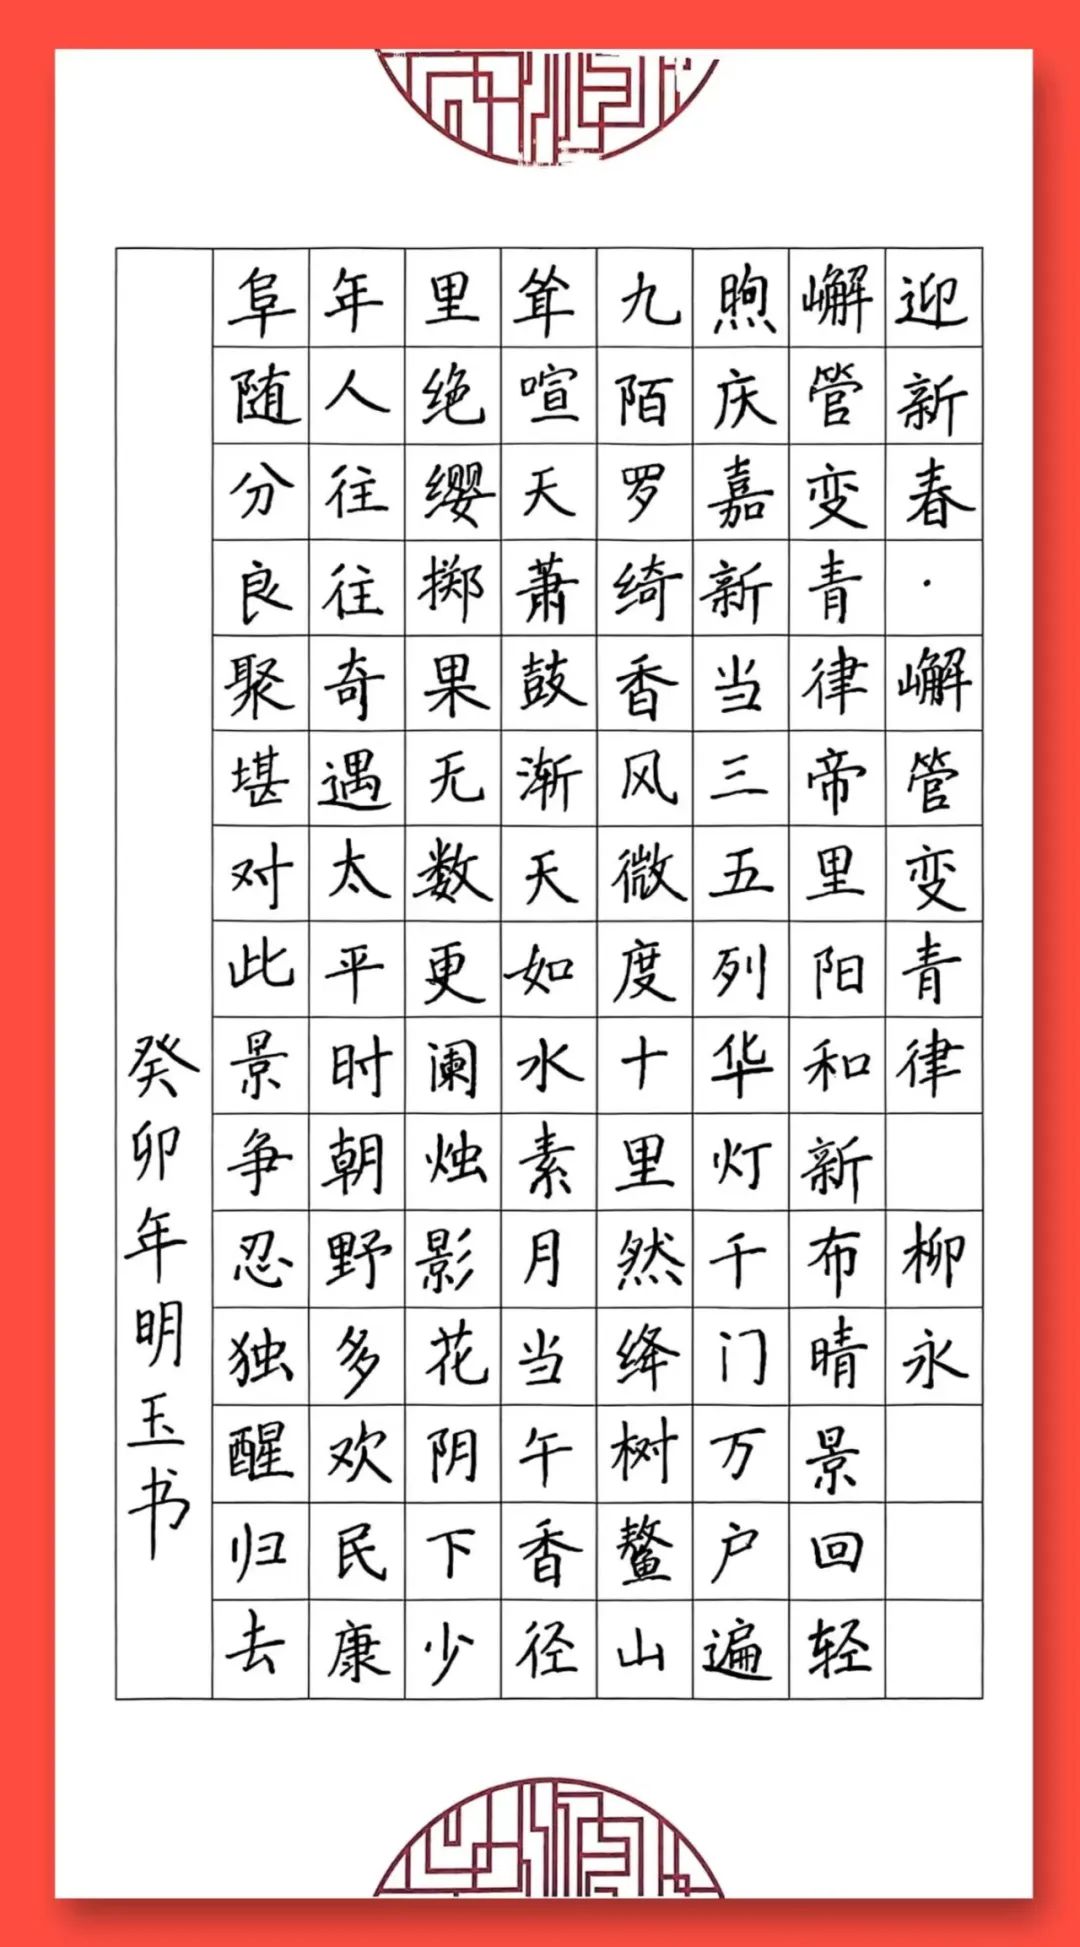 迎新春·嶰管变青律 柳永
嶰管变青律帝里阳和新布晴景回轻
煦庆嘉新当三五列华灯千门万户遍
九陌罗绮香风微度十里然绛树鳌山
耸喧天萧鼓渐天如水素月当午香径
里绝缨掷果无数更阑烛影花阴下少
年人往往奇遇太平时朝野多欢民康
阜随分良聚堪对此景争忍独醒归去
癸卯年明玉书